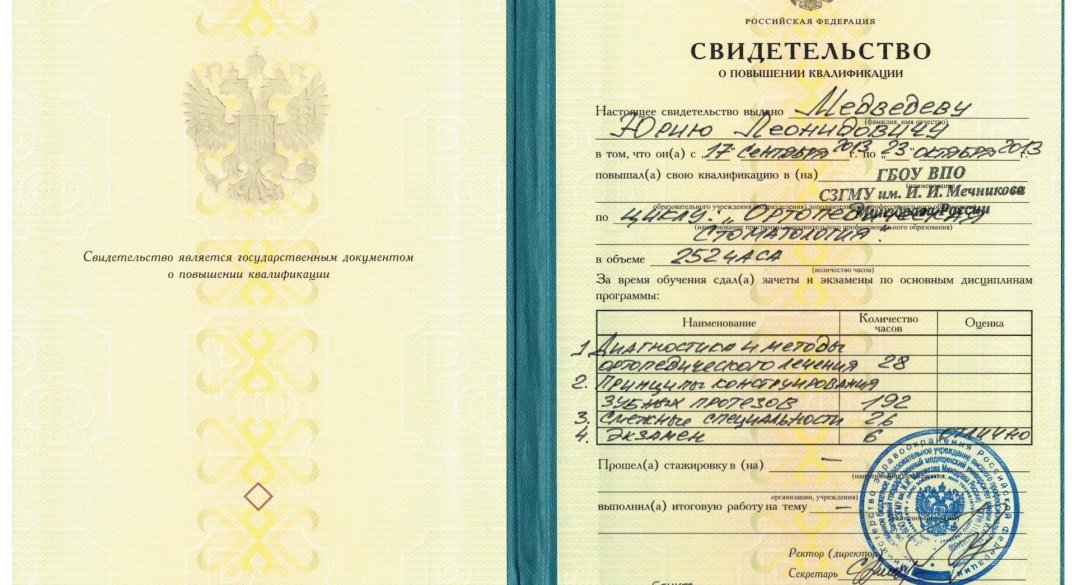 Свидетельство является государственным документом
о повышении квалификации
РОССИЙСКАЯ ФЕДЕРАЦИЯ
СВИДЕТЕЛЬСТВО
О ПОВЫШЕНИИ КВАЛИФИКАЦИИ
Настоящее свидетельство выдано Медведеву
(фамилия, имя, отчество)
Юрию Леонидовичу
в том, что он(а) с „17" сентября 2013 г. по „23" октября 2013 г.
повышал(а) свою квалификацию в (на) ГБОУ ВПО
(наименование
СЗГМУ им. И. И. Мечникова
образовательного учреждения (подразделения) дополнительного профессионального образования)
Минздрава России
по циклу: „Ортопедическая
(наименование программы дополнительного профессионального образования)
стоматология".
в объеме 252 часа
(количество часов)
За время обучения сдал(а) зачеты и экзамены по основным дисциплинам
программы:
Наименование Количество часов Оценка
1. Диагностика и методы
ортопедического лечения 28
2. Принципы конструирования
зубных протезов 192
3. Смежные специальности 26
4. Экзамен 6 отлично
Прошел(а) стажировку в (на) —
организации, учреждения)
выполнил(а) итоговую работу на тему —
Ректор (директор)
Секретарь